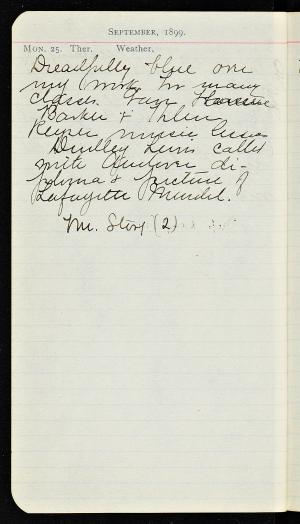 SEPTEMBER, 1899.
MON. 25. Ther. Weather.
Dreadfully blue over
my work. So many
classes. Gave
Barker & Helen
Keyser music lesson
Dudley Lunn called
with Andover di-
ploma & picture of
Lafayette Mundil.
M. Story (2)